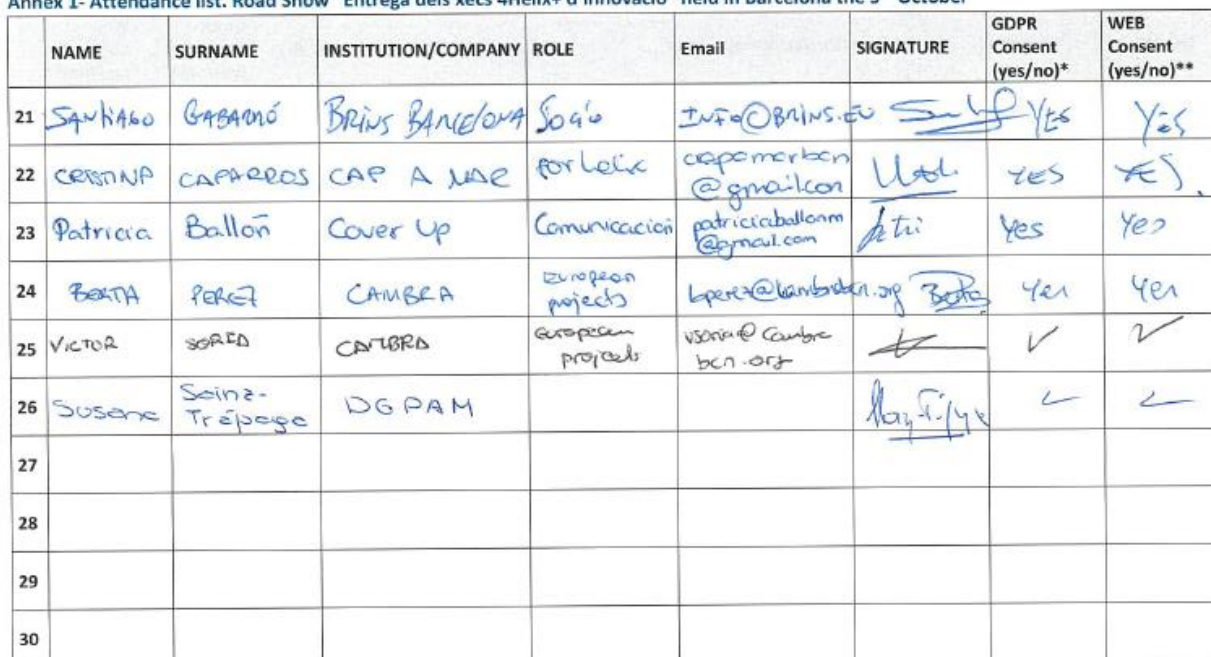 Annex 1- Attendance list. Road Show "Entrega dels xecs 4Helix+ d'innovació" held in Barcelona the 3rd October
NAME SURNAME INSTITUTION/COMPANY ROLE Email SIGNATURE GDPR Consent (yes/no)* WEB Consent (yes/no)**
21 SANTIAGO GABARRÓ BRINS BARCELONA Socio INFO@BRINS.EU Yes Yes
22 CRISTINA CAPARROS CAP A MAR capamarbcn
@gmail.com YES YES
23 Patricia Ballón Cover Up Comunicación patriciaballonm
@gmail.com Yes Yes
24 BERTA PEREZ CAMBRA European
projects bperez@cambrabcn.org Berta Yes Yes
25 VICTOR SORIA CAMBRA European
projects vsoria@cambra
bcn.org ✓ ✓
26 Susana Sainz-
Trápaga DGPAM ✓ ✓
27
28
29
30